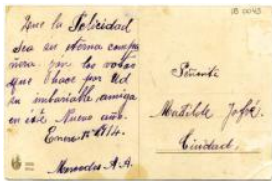 Que la Felicidad
sea su eterna compa
ñera son los votos
que hace por Ud
su imbariable amiga
en éste Nuevo año.
Enero 1º 1914.
Mercedes A. A.
IB 0043
Señorita
Matilde Jofré.
Ciudad.